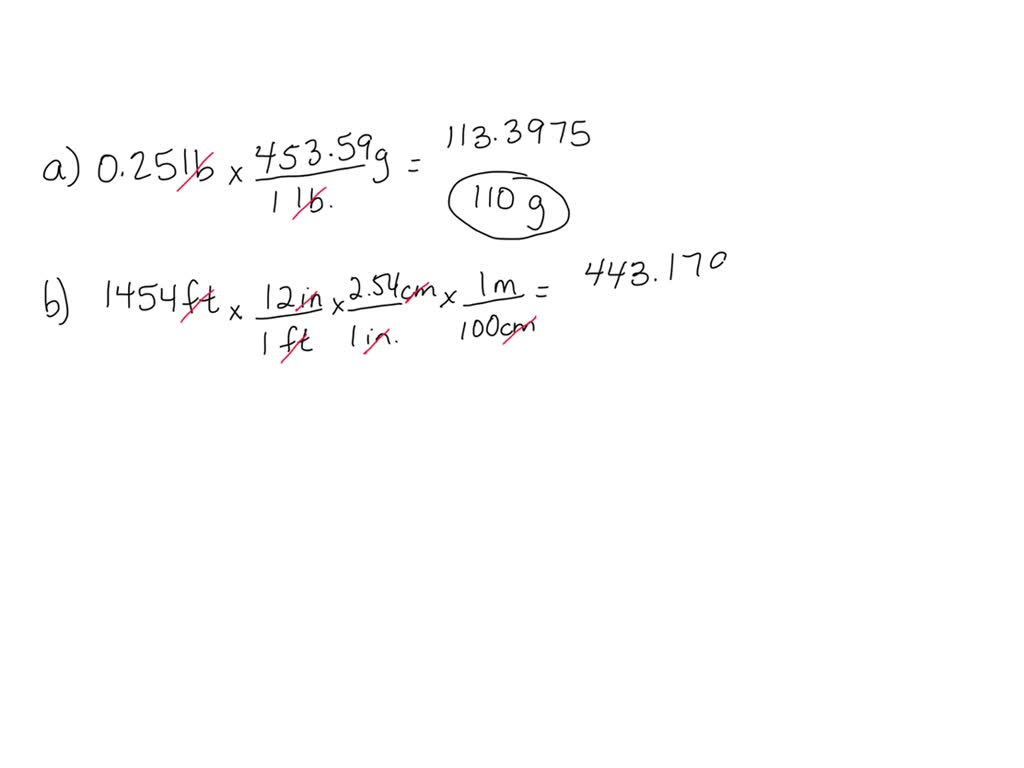 a) 0.25 lb × 453.59 g / 1 lb. = 113.3975
110 g
b) 1454 ft × 12 in / 1 ft × 2.54 cm / 1 in. × 1 m / 100 cm = 443.170